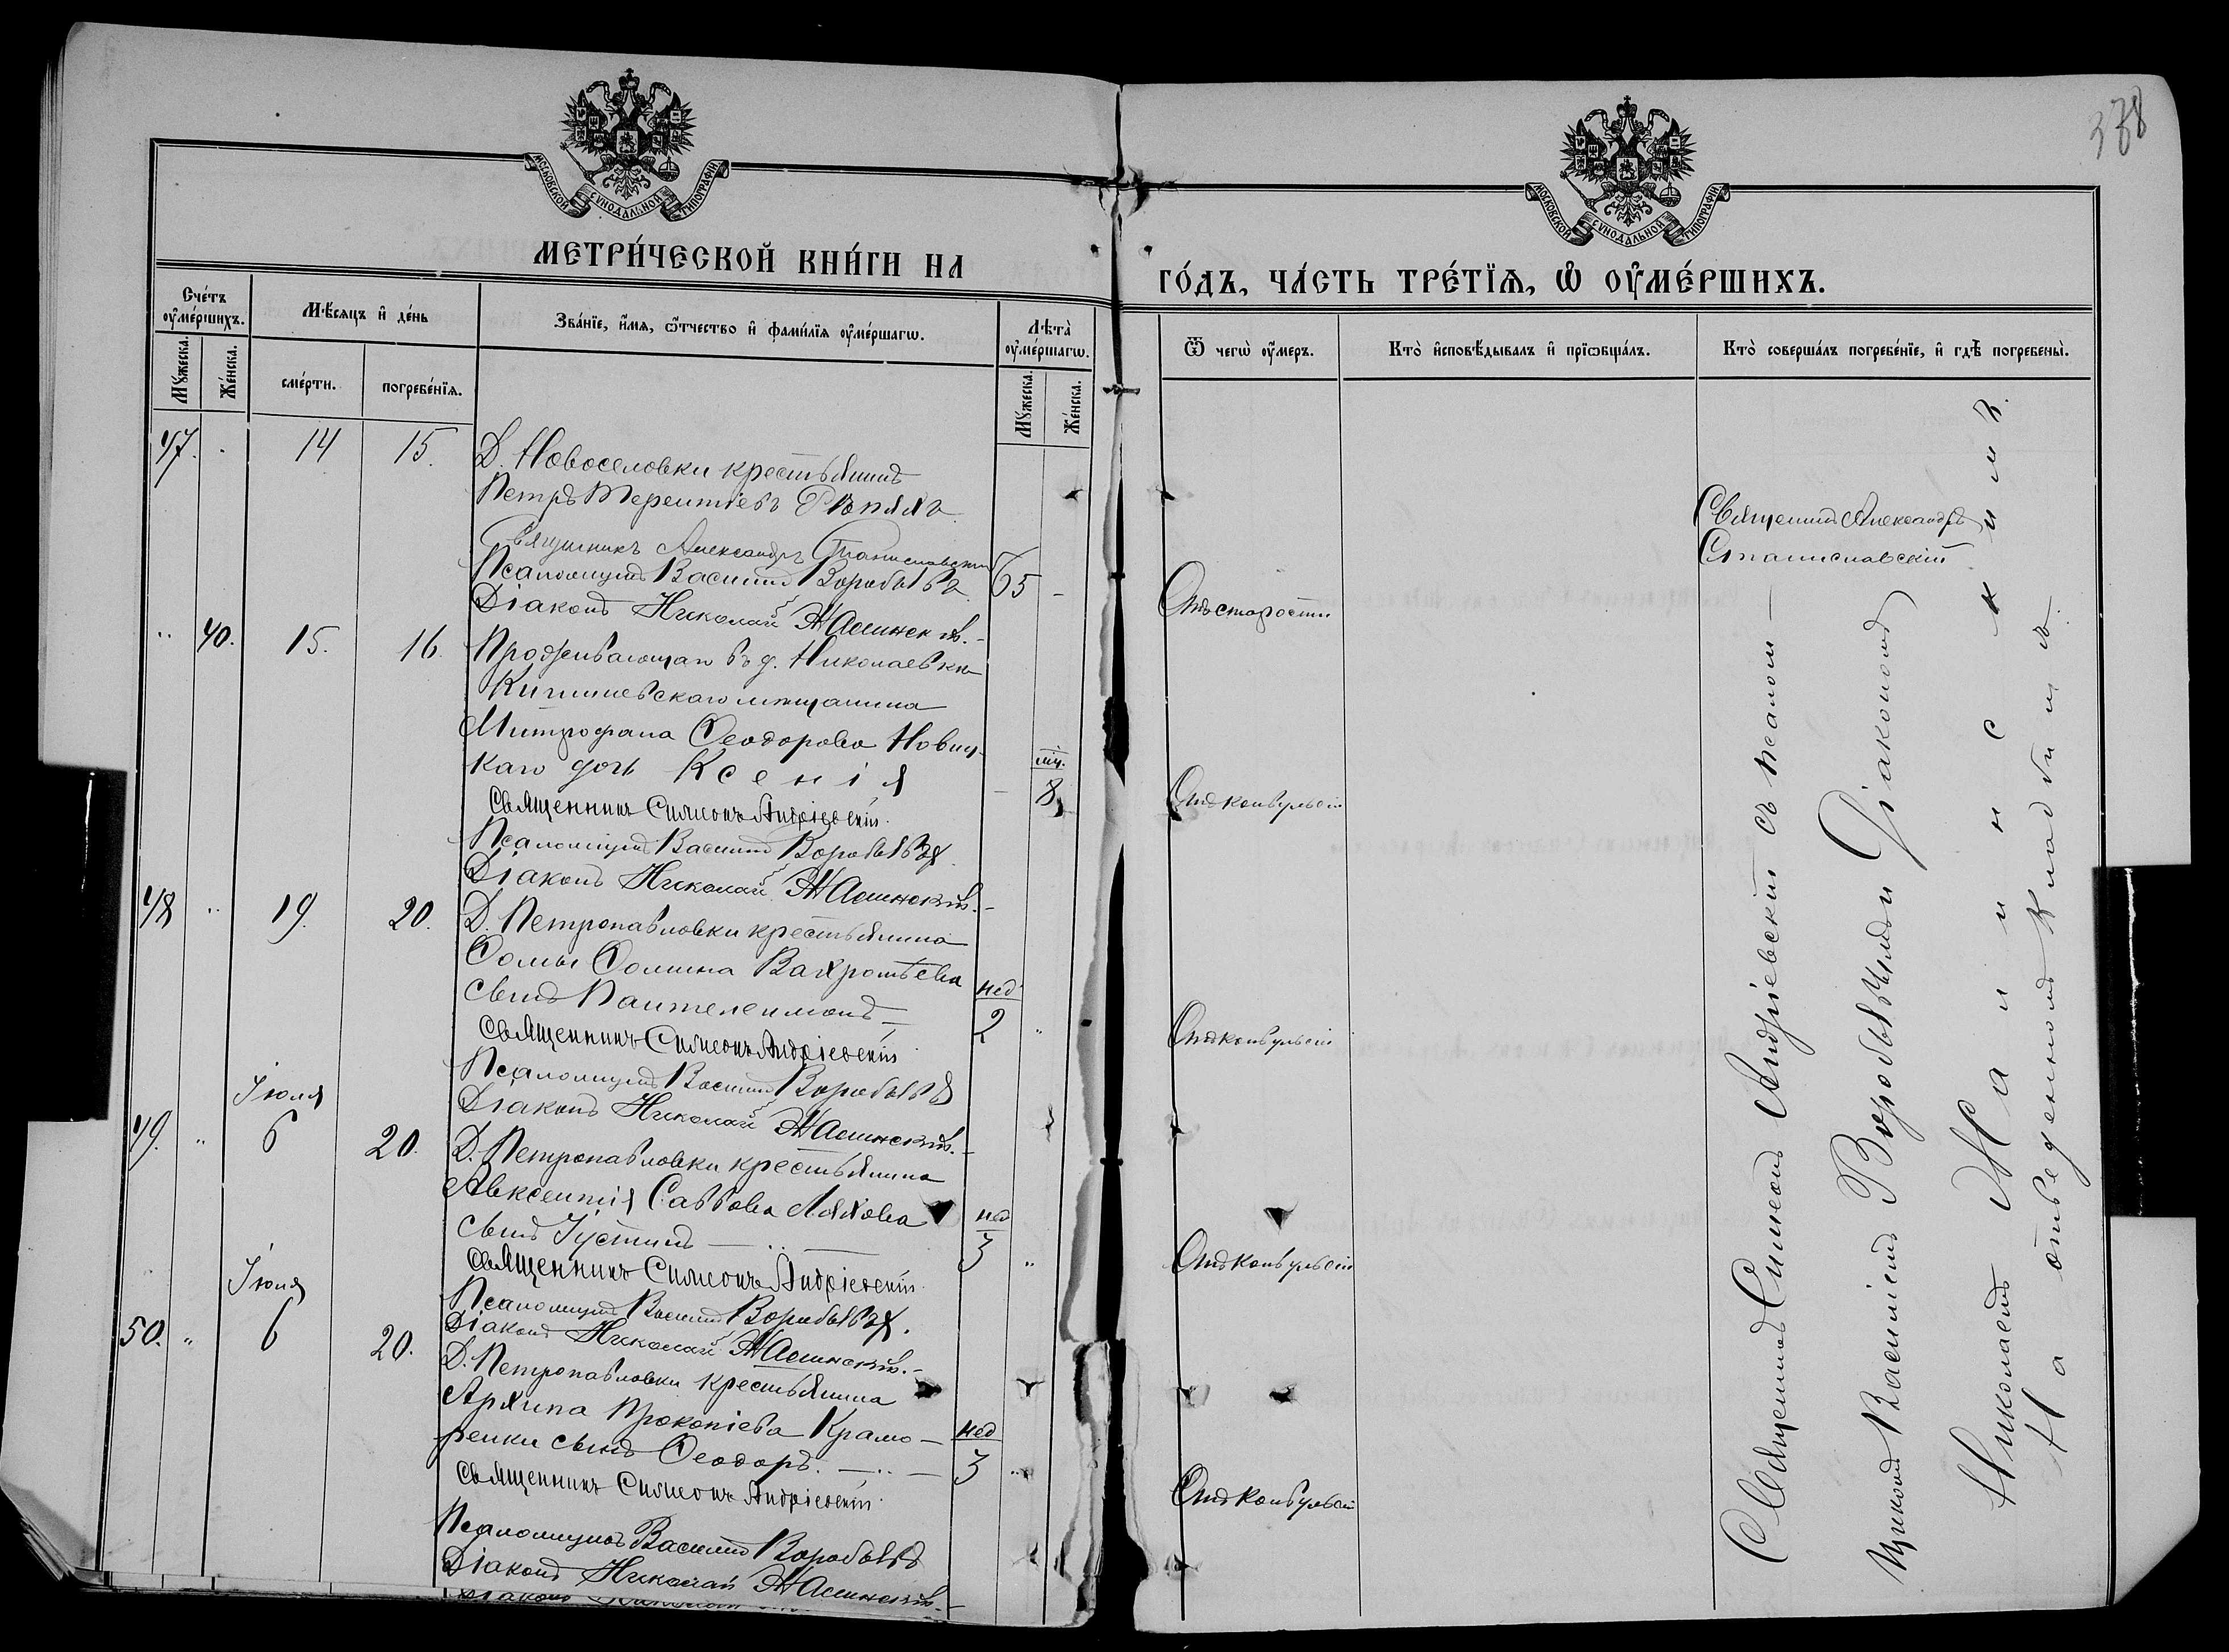 338
МОСКОВСКОЙ СѴНОДАЛЬНОЙ ТИПОГРАФІИ
МОСКОВСКОЙ СѴНОДАЛЬНОЙ ТИПОГРАФІИ
МЕТРИ́ЧЕСКОЙ КНИ́ГИ НА
ГО́ДЪ, ЧА́СТЬ ТРЕ́ТЇѦ, Ѡ҆ ОУ҆МЕ́РШИХЪ.
Сче́тъ оу҆ме́ршихъ.
Мꙋ́жеска.
Же́нска.
Мѣ́сяцъ и҆ де́нь
сме́рти.
погребе́нїѧ.
Зва́нїе, и҆́мѧ, ѻ҆́тчество и҆ фами́лїѧ оу҆ме́ршагѡ.
Лѣта̀ оу҆ме́ршагѡ.
Мꙋ́жеска.
Же́нска.
Ѿ чегѡ̀ оу҆́меръ.
Кто̀ и҆сповѣ́дывалъ и҆ прїѡбща́лъ.
Кто̀ соверша́лъ погребе́нїе, и҆ гдѣ̀ погребены̀.
47. 14 15. Д. Новоселовки крестьянинъ
Петръ Терентіевъ Рѣпяхъ
Священникъ Александръ Станиславскій
Псаломщикъ Василій Воробьевъ 65
Діаконъ Николай
Отъ старости
Священникъ Александръ
Станиславскій
40. 15. 16. Проживающаго въ д. Николаевкѣ
Кишиневскаго мѣщанина
Митрофана Ѳеодорова Новиц-
каго дочь Ксенія
міс. 8
Священникъ Симеонъ Андріевскій.
Псаломщикъ Василій Воробьевъ
Діаконъ Николай
Отъ конвульсій
48 19. 20. Д. Петропавловки крестьянина
Ѳомы Ѳомина Вахромѣева
сынъ Пантелеимонъ
нед 2
Священникъ Симеонъ Андріевскій
Псаломщикъ Василій Воробьевъ
Діаконъ Николай
Отъ конвульсій
Іюля
49. 6 20. Д. Петропавловки крестьянина
Авксентія Саввова Ляхова
сынъ Іустинъ
нед 3
Священникъ Симеонъ Андріевскій.
Псаломщикъ Василій Воробьевъ.
Діаконъ Николай
Отъ конвульсій
Іюля
50. 6 20. Д. Петропавловки крестьянина
Архипа Прокопіева Крамо-
ренки сынъ Ѳеодоръ.
нед 3
Священникъ Симеонъ Андріевскій.
Псаломщикъ Василій Воробьевъ
Діаконъ Николай
Отъ конвульсій
Священникъ Симеонъ Андріевскій съ псалом-
щикомъ Василіемъ Воробьевымъ и Діакономъ
Николаемъ
На отведенномъ кладбищѣ.